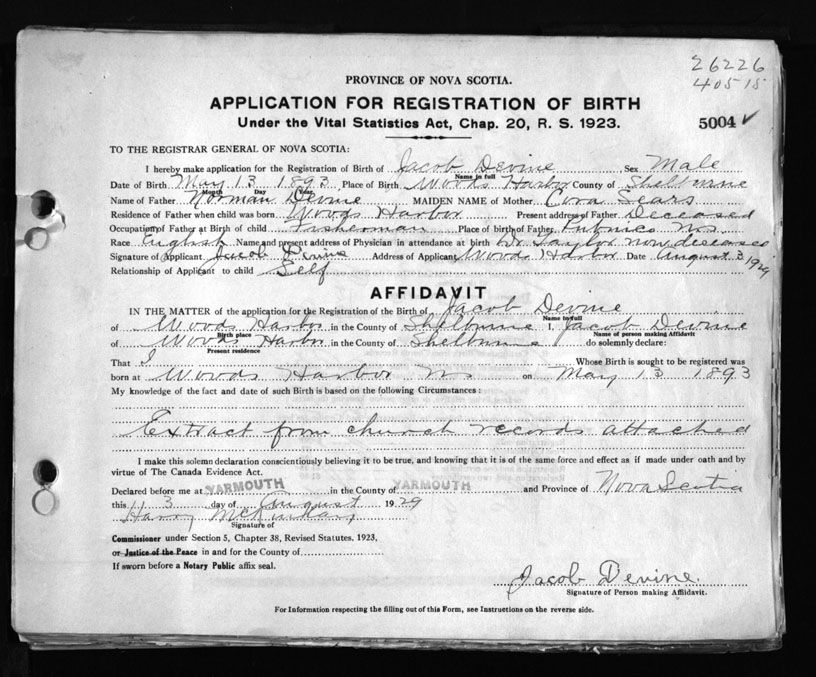 26226
40515
PROVINCE OF NOVA SCOTIA.
APPLICATION FOR REGISTRATION OF BIRTH
Under the Vital Statistics Act, Chap. 20, R. S. 1923.
5004 ✓
TO THE REGISTRAR GENERAL OF NOVA SCOTIA:
I hereby make application for the Registration of Birth of Jacob Devine Sex Male
Name in full
Date of Birth May 13 1893 Place of Birth Woods Harbor County of Shelburne
Month Day Year
Name of Father Norman Devine MAIDEN NAME of Mother Cora Sears
Residence of Father when child was born Woods Harbor Present address of Father Deceased
Occupation of Father at Birth of child Fisherman Place of birth of Father Pubnico N.S.
Race English Name and present address of Physician in attendance at birth Dr Taylor now deceased
Signature of Applicant Jacob Devine Address of Applicant Woods Harbor Date August 3 1929
Relationship of Applicant to child Self
AFFIDAVIT
IN THE MATTER of the application for the Registration of the Birth of Jacob Devine
Name in full
of Woods Harbor in the County of Shelburne I, Jacob Devine
Birth place Name of person making Affidavit
of Woods Harbor in the County of Shelburne do solemnly declare:
Present residence
That I Whose Birth is sought to be registered was
born at Woods Harbor NS on May 13 1893
My knowledge of the fact and date of such Birth is based on the following Circumstances:
Extract from church records attached
I make this solemn declaration conscientiously believing it to be true, and knowing that it is of the same force and effect as if made under oath and by
virtue of The Canada Evidence Act.
Declared before me at YARMOUTH in the County of YARMOUTH and Province of Nova Scotia
this 3 day of August 1929
Harry
Signature of
Commissioner under Section 5, Chapter 38, Revised Statutes, 1923,
or Justice of the Peace in and for the County of
If sworn before a Notary Public affix seal.
Jacob Devine.
Signature of Person making Affidavit.
For Information respecting the filling out of this Form, see Instructions on the reverse side.